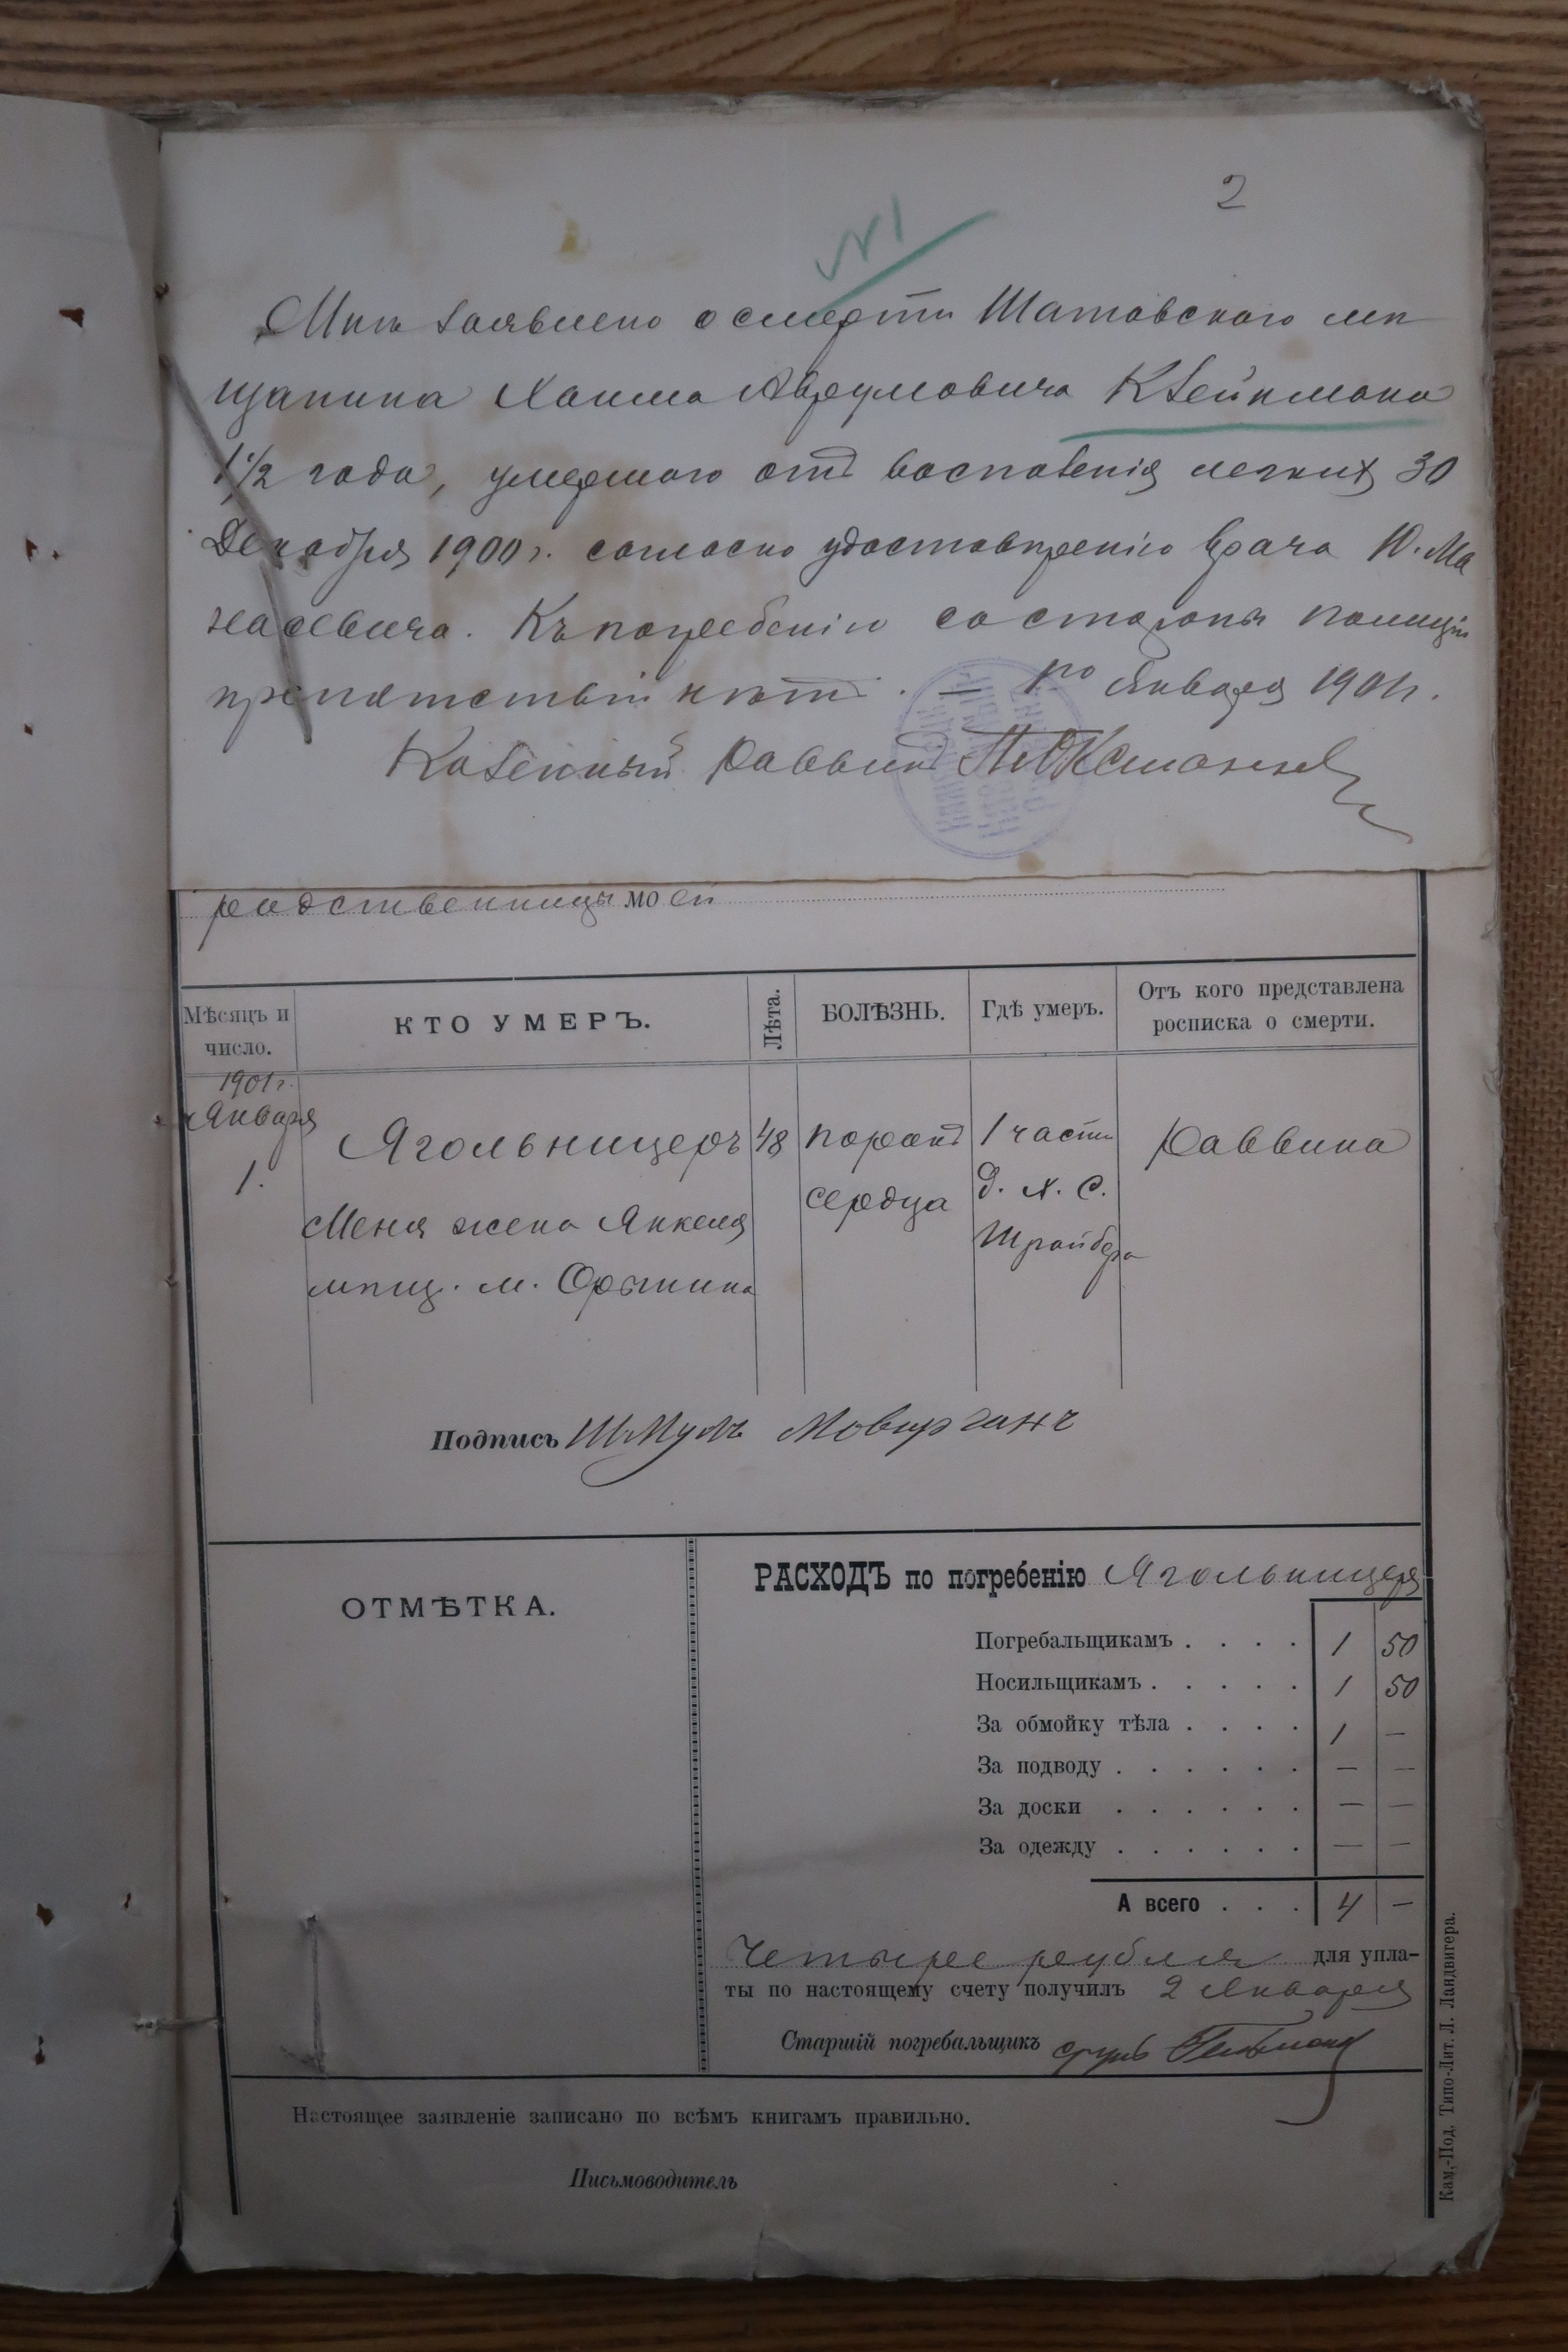 2
№1
Мнѣ заявлено о смерти Шатавскаго мѣ
щанина Хаима Аврумовича Клейнмана
1½ года, умершаго отъ воспаленія легкихъ 30
Декабря 1900 г. согласно удостовѣренію врача Ю. Ма
насевича. Къ погребенію со стороны полиціи
препятствій нѣтъ. — 1го Января 1901 г.
Казенный Раввинъ
родственницы моей
Мѣсяцъ и число.
КТО УМЕРЪ.
Лѣта.
БОЛѢЗНЬ.
Гдѣ умеръ.
Отъ кого представлена росписка о смерти.
1901 г.
Января
1.
Ягольницеръ
Меня жена Янкеля
мѣщ. м. Орынина
48
порокъ
сердца
1 части
д. Х. С.
Шрайбера
Раввина
Подпись Шмуль
ОТМѢТКА.
РАСХОДЪ по погребенію Ягольницеръ
Погребальщикамъ . . . . 1 50
Носильщикамъ . . . . . 1 50
За обмойку тѣла . . . . 1 —
За подводу . . . . . . — —
За доски . . . . . . — —
За одежду . . . . . . — —
А всего . . . 4 —
Четыре рубля для упла-
ты по настоящему счету получилъ 2 Января
Старшій погребальщикъ
Настоящее заявленіе записано по всѣмъ книгамъ правильно.
Письмоводитель
Кам.-Под. Типо-Лит. Л. Ландвигера.